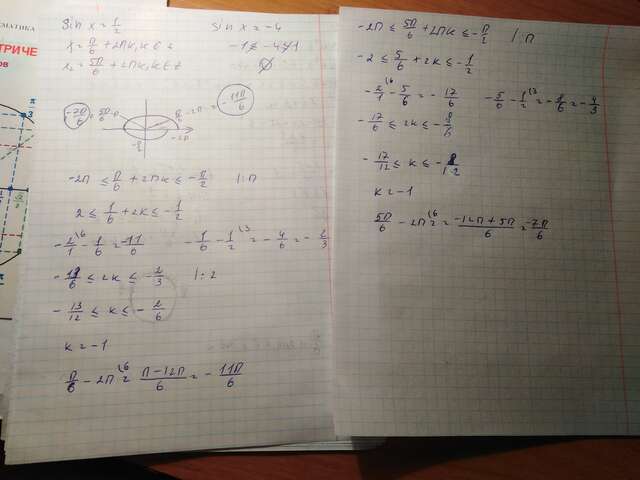 МАТЕМАТИКА
ТРИЧЕ
π/3
Sin x = 1/2
x₁ = π/6 + 2πk, k ∈ z
x₂ = 5π/6 + 2πk, k ∈ z
sin x = -4
∅
-2π ≤ π/6 + 2πk ≤ -π/2 |:π
2 ≤ 1/6 + 2k ≤ -1/2
-2/1 - 1/6 = -11/6 -1/6 - 1/2 = -4/6 = -2/3
≤ 2k ≤ -2/3 |:2
-13/12 ≤ k ≤ -2/6
k = -1
π/6 - 2π = (π - 12π)/6 = -11π/6
-2π ≤ 5π/6 + 2πk ≤ -π/2 |:π
-2 ≤ 5/6 + 2k ≤ -1/2
-2/1 - 5/6 = -17/6 -5/6 - 1/2 = -8/6 = -4/3
-17/6 ≤ 2k ≤ -8/6
-17/12 ≤ k ≤
k = -1
5π/6 - 2π = (-12π + 5π)/6 = -7π/6